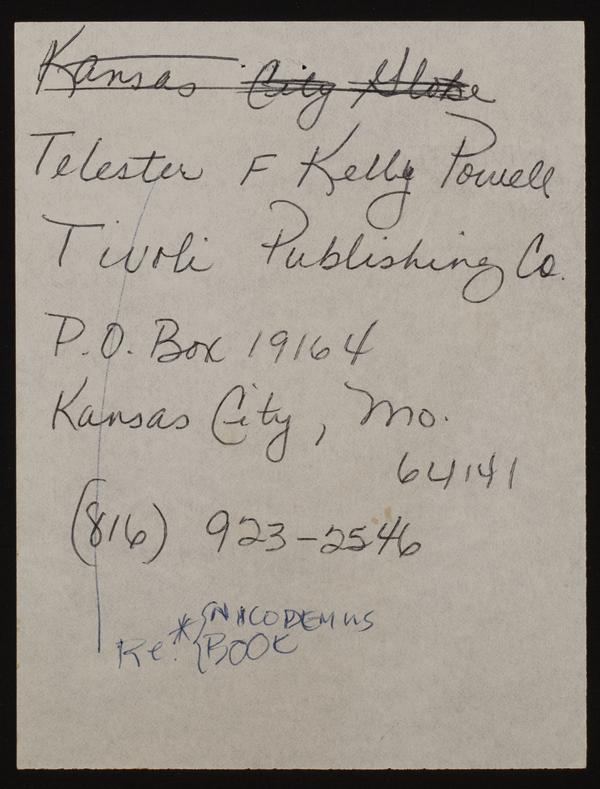 Kansas City Globe
Telester F Kelly Powell
Tivoli Publishing Co.
P.O. Box 19164
Kansas City, Mo.
64141
(816) 923-2546
Re: * { NICODEMUS
BOOK